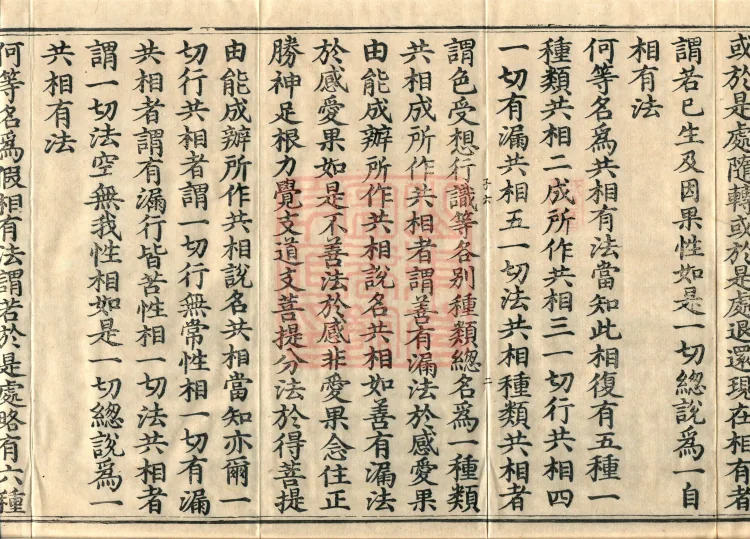 或於是處隨轉或於是處退還現在相有者
謂若已生及因果性如是一切總說爲一自
相有法
何等名爲共相有法當知此相復有五種一
種類共相二成所作共相三一切行共相四
一切有漏共相五一切法共相種類共相者
謂色受想行識等各別種類總名爲一種類
共相成所作共相者謂善有漏法於感愛果
由能成辦所作共相說名共相如善有漏法
於感愛果如是不善法於感非愛果念住正
勝神足根力覺支道支菩提分法於得菩提
由能成辦所作共相說名共相當知亦爾一
切行共相者謂一切行無常性相一切有漏
共相者謂有漏行皆苦性相一切法共相者
謂一切法空無我性相如是一切總說爲一
共相有法
何等名爲假相有法謂若於是處略有六種